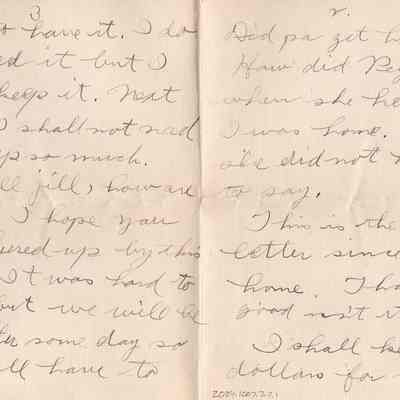 3
o have it. I do
ed it but I
keep it. Next
I shall not need
up so much.
ll jill, how are
I hope you
eered up by this
It was hard to
but we will be
her some day so
ll have to
2.
Did pa get h
How did Peg
when she he
I was home.
she did not
to say.
This is the
letter since
home. Tha
good isn't it
I shall ke
dollars for
2004.1667.27.1